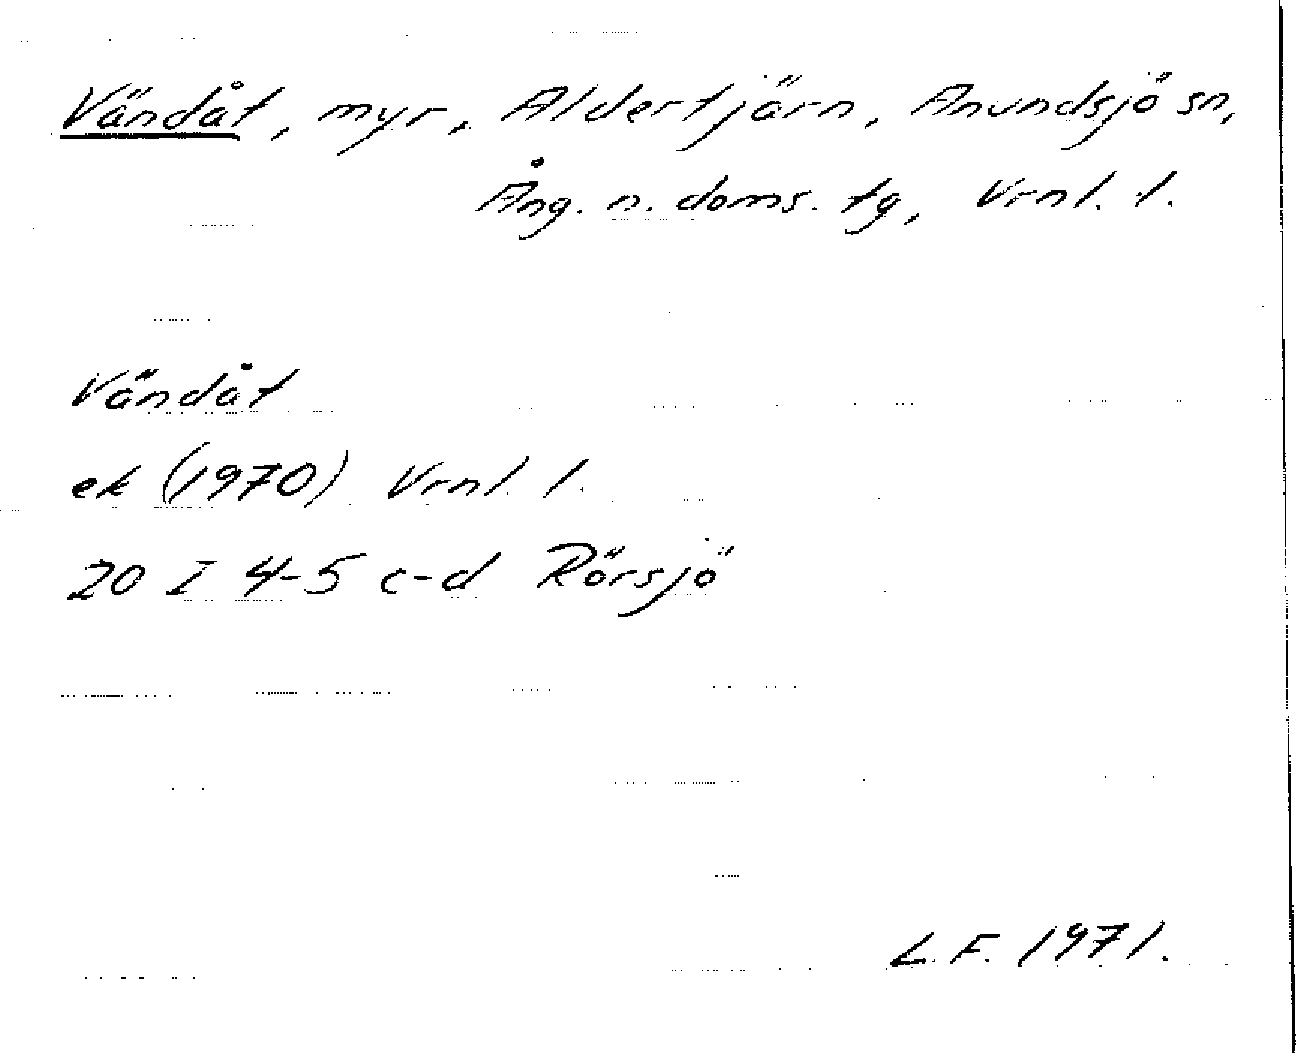 Vändåt, myr, Aldertjärn, Anundsjö sn,
Ång. n. doms. tg, Vrnl. l.
Vändåt
ek (1970) Vrnl. l.
20 I 4-5 c-d Rörsjö
L.F. 1971.